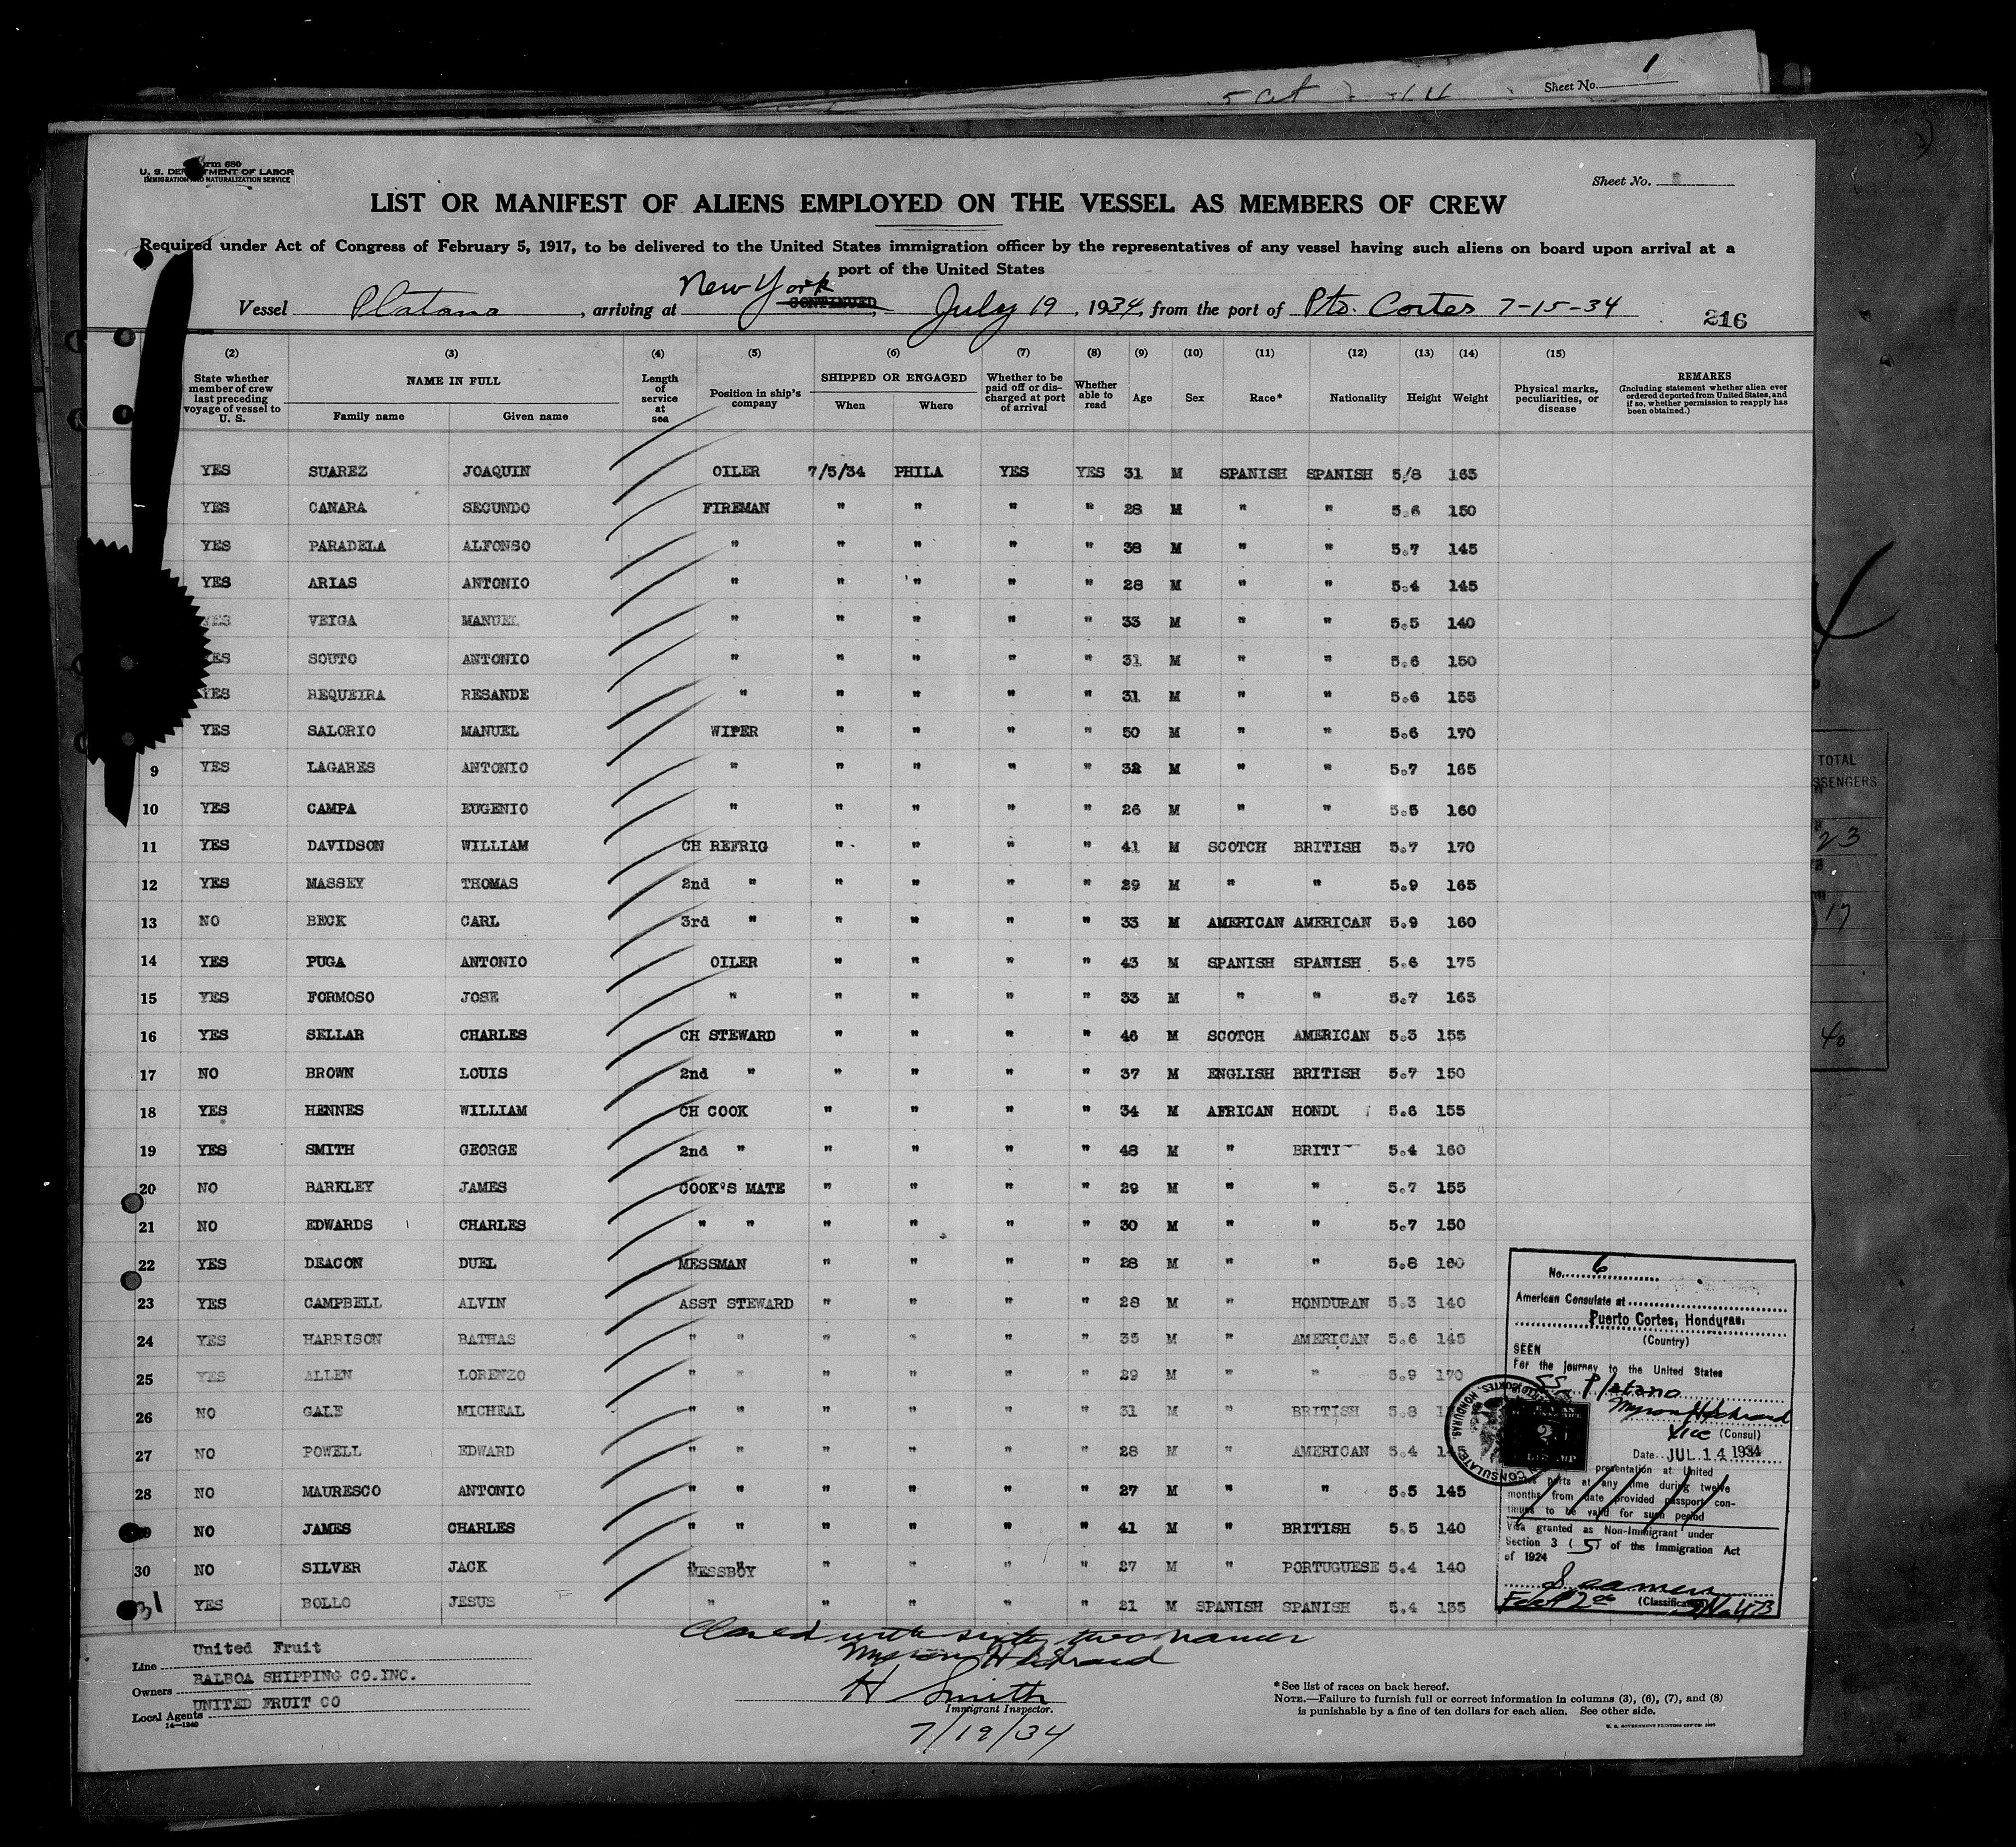 5
Sheet No. 1
Form 680
U. S. DEPARTMENT OF LABOR
IMMIGRATION AND NATURALIZATION SERVICE
Sheet No.
LIST OR MANIFEST OF ALIENS EMPLOYED ON THE VESSEL AS MEMBERS OF CREW
Required under Act of Congress of February 5, 1917, to be delivered to the United States immigration officer by the representatives of any vessel having such aliens on board upon arrival at a
port of the United States
Vessel Platano, arriving at New York CONTINUED, July 19, 1934, from the port of Pto. Cortes 7-15-34
216
(2) (3) (4) (5) (6) (7) (8) (9) (10) (11) (12) (13) (14) (15)
State whether member of crew last preceding voyage of vessel to U. S. NAME IN FULL Family name Given name Length of service at sea Position in ship's company SHIPPED OR ENGAGED When Where Whether to be paid off or discharged at port of arrival Whether able to read Age Sex Race* Nationality Height Weight Physical marks, peculiarities, or disease REMARKS (Including statement whether alien ever ordered deported from United States, and if so, whether permission to reapply has been obtained.)
YES SUAREZ JOAQUIN OILER 7/5/34 PHILA YES YES 31 M SPANISH SPANISH 5/8 165
YES CANARA SECUNDO FIREMAN " " " " 28 M " " 5.6 150
YES PARADELA ALFONSO " " " " " 38 M " " 5.7 145
YES ARIAS ANTONIO " " " " " 28 M " " 5.4 145
YES VEIGA MANUEL " " " " " 33 M " " 5.5 140
YES SOUTO ANTONIO " " " " " 31 M " " 5.6 150
YES REQUEIRA RESANDE " " " " " 31 M " " 5.6 155
YES SALORIO MANUEL WIPER " " " " 50 M " " 5.6 170
9 YES LAGARES ANTONIO " " " " " 32 M " " 5.7 165
10 YES CAMPA EUGENIO " " " " " 26 M " " 5.5 160
11 YES DAVIDSON WILLIAM CH REFRIG " " " " 41 M SCOTCH BRITISH 5.7 170
12 YES MASSEY THOMAS 2nd " " " " " 29 M " " 5.9 165
13 NO BECK CARL 3rd " " " " " 33 M AMERICAN AMERICAN 5.9 160
14 YES PUGA ANTONIO OILER " " " " 43 M SPANISH SPANISH 5.6 175
15 YES FORMOSO JOSE " " " " " 33 M " " 5.7 165
16 YES SELLAR CHARLES CH STEWARD " " " " 46 M SCOTCH AMERICAN 5.3 155
17 NO BROWN LOUIS 2nd " " " " " 37 M ENGLISH BRITISH 5.7 150
18 YES HENNES WILLIAM CH COOK " " " " 34 M AFRICAN HONDU 5.6 155
19 YES SMITH GEORGE 2nd " " " " " 48 M " BRITI 5.4 160
20 NO BARKLEY JAMES COOK'S MATE " " " " 29 M " " 5.7 155
21 NO EDWARDS CHARLES " " " " " " 30 M " " 5.7 150
22 YES DEACON DUEL MESSMAN " " " " 28 M " " 5.8 160
23 YES CAMPBELL ALVIN ASST STEWARD " " " " 28 M " HONDURAN 5.3 140
24 YES HARRISON BATHAS " " " " " " 35 M " AMERICAN 5.6 145
25 YES ALLEN LORENZO " " " " " " 29 M " " 5.9 170
26 NO GALE MICHEAL " " " " " " 31 M " BRITISH 5.8
27 NO POWELL EDWARD " " " " " " 28 M " AMERICAN 5.4 145
28 NO MAURESCO ANTONIO " " " " " " 27 M " " 5.5 145
29 NO JAMES CHARLES " " " " " " 41 M " BRITISH 5.5 140
30 NO SILVER JACK MESSBOY " " " " 27 M " PORTUGUESE 5.4 140
31 YES BOLLO JESUS " " " " " 21 M SPANISH SPANISH 5.4 135
No. 6
American Consulate at
Puerto Cortes, Honduras.
(Country)
SEEN
For the journey to the United States
SS Platano
Vice (Consul)
Date JUL 14 1934
presentation at United
ports at any time during twelve
months from date provided passport con-
tinues to be valid for such period
Visa granted as Non-Immigrant under
Section 3 (5) of the Immigration Act
of 1924
Seamen
(Classification)
CONSULATE
TOTAL
PASSENGERS
23
17
40
Closed with sixty two names
Line United Fruit
Owners BALBOA SHIPPING CO.INC.
Local Agents UNITED FRUIT CO
14—1240
H Smith
Immigrant Inspector.
7/19/34
*See list of races on back hereof.
NOTE.—Failure to furnish full or correct information in columns (3), (6), (7), and (8)
is punishable by a fine of ten dollars for each alien. See other side.
U. S. GOVERNMENT PRINTING OFFICE